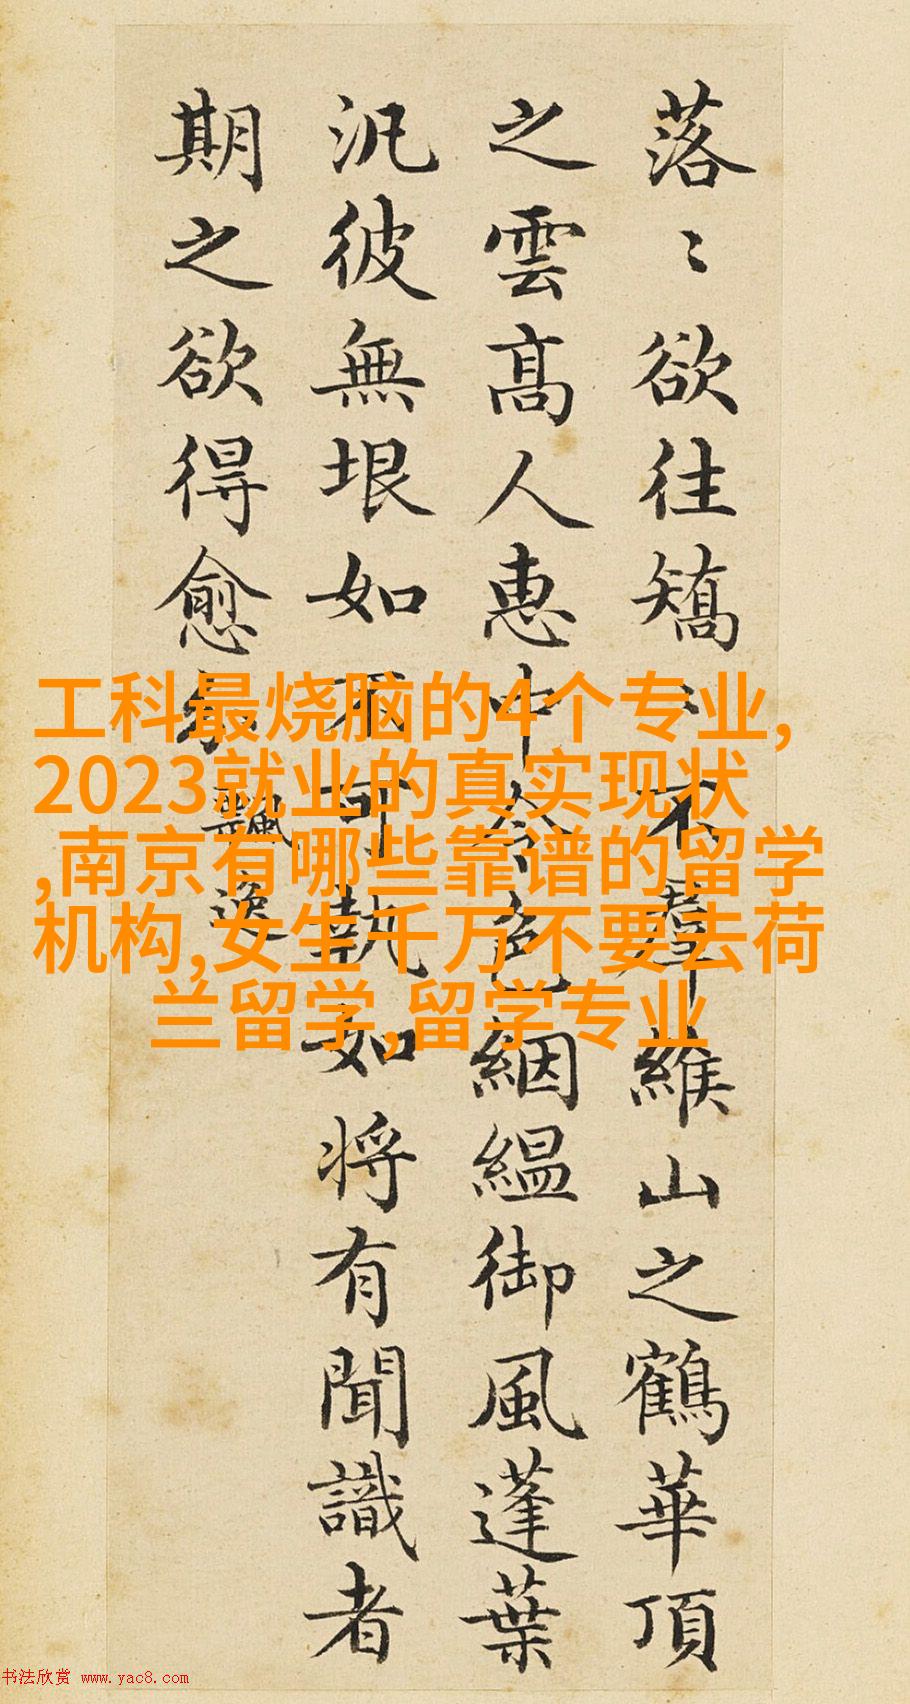 落〻欲往矯〻不羣緱山之鶴華頂
之雲高人惠中令色絪縕御風蓬葉
汎彼無垠如不可執如将有聞識者
期之欲得愈分
飄逸
工科最烧脑的4个专业,
2023就业的真实现状
,南京有哪些靠谱的留学
机构,女生千万不要去荷
兰留学,留学专业
书法欣赏 www.yac8.com